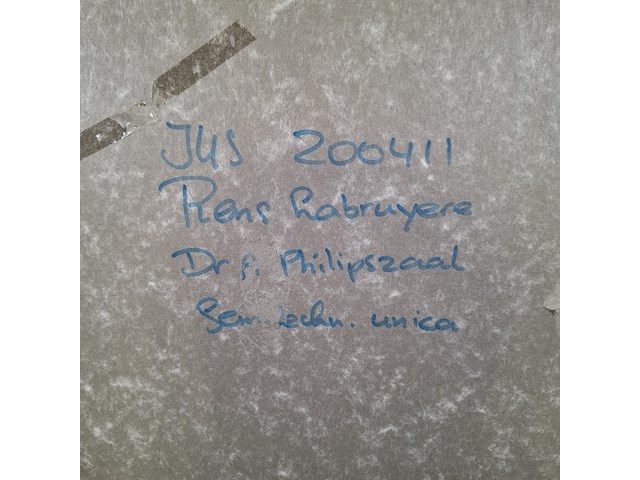 JUS 200411
Rens Labruyere
Dr A. Philipszaal
Gem. techn. unica